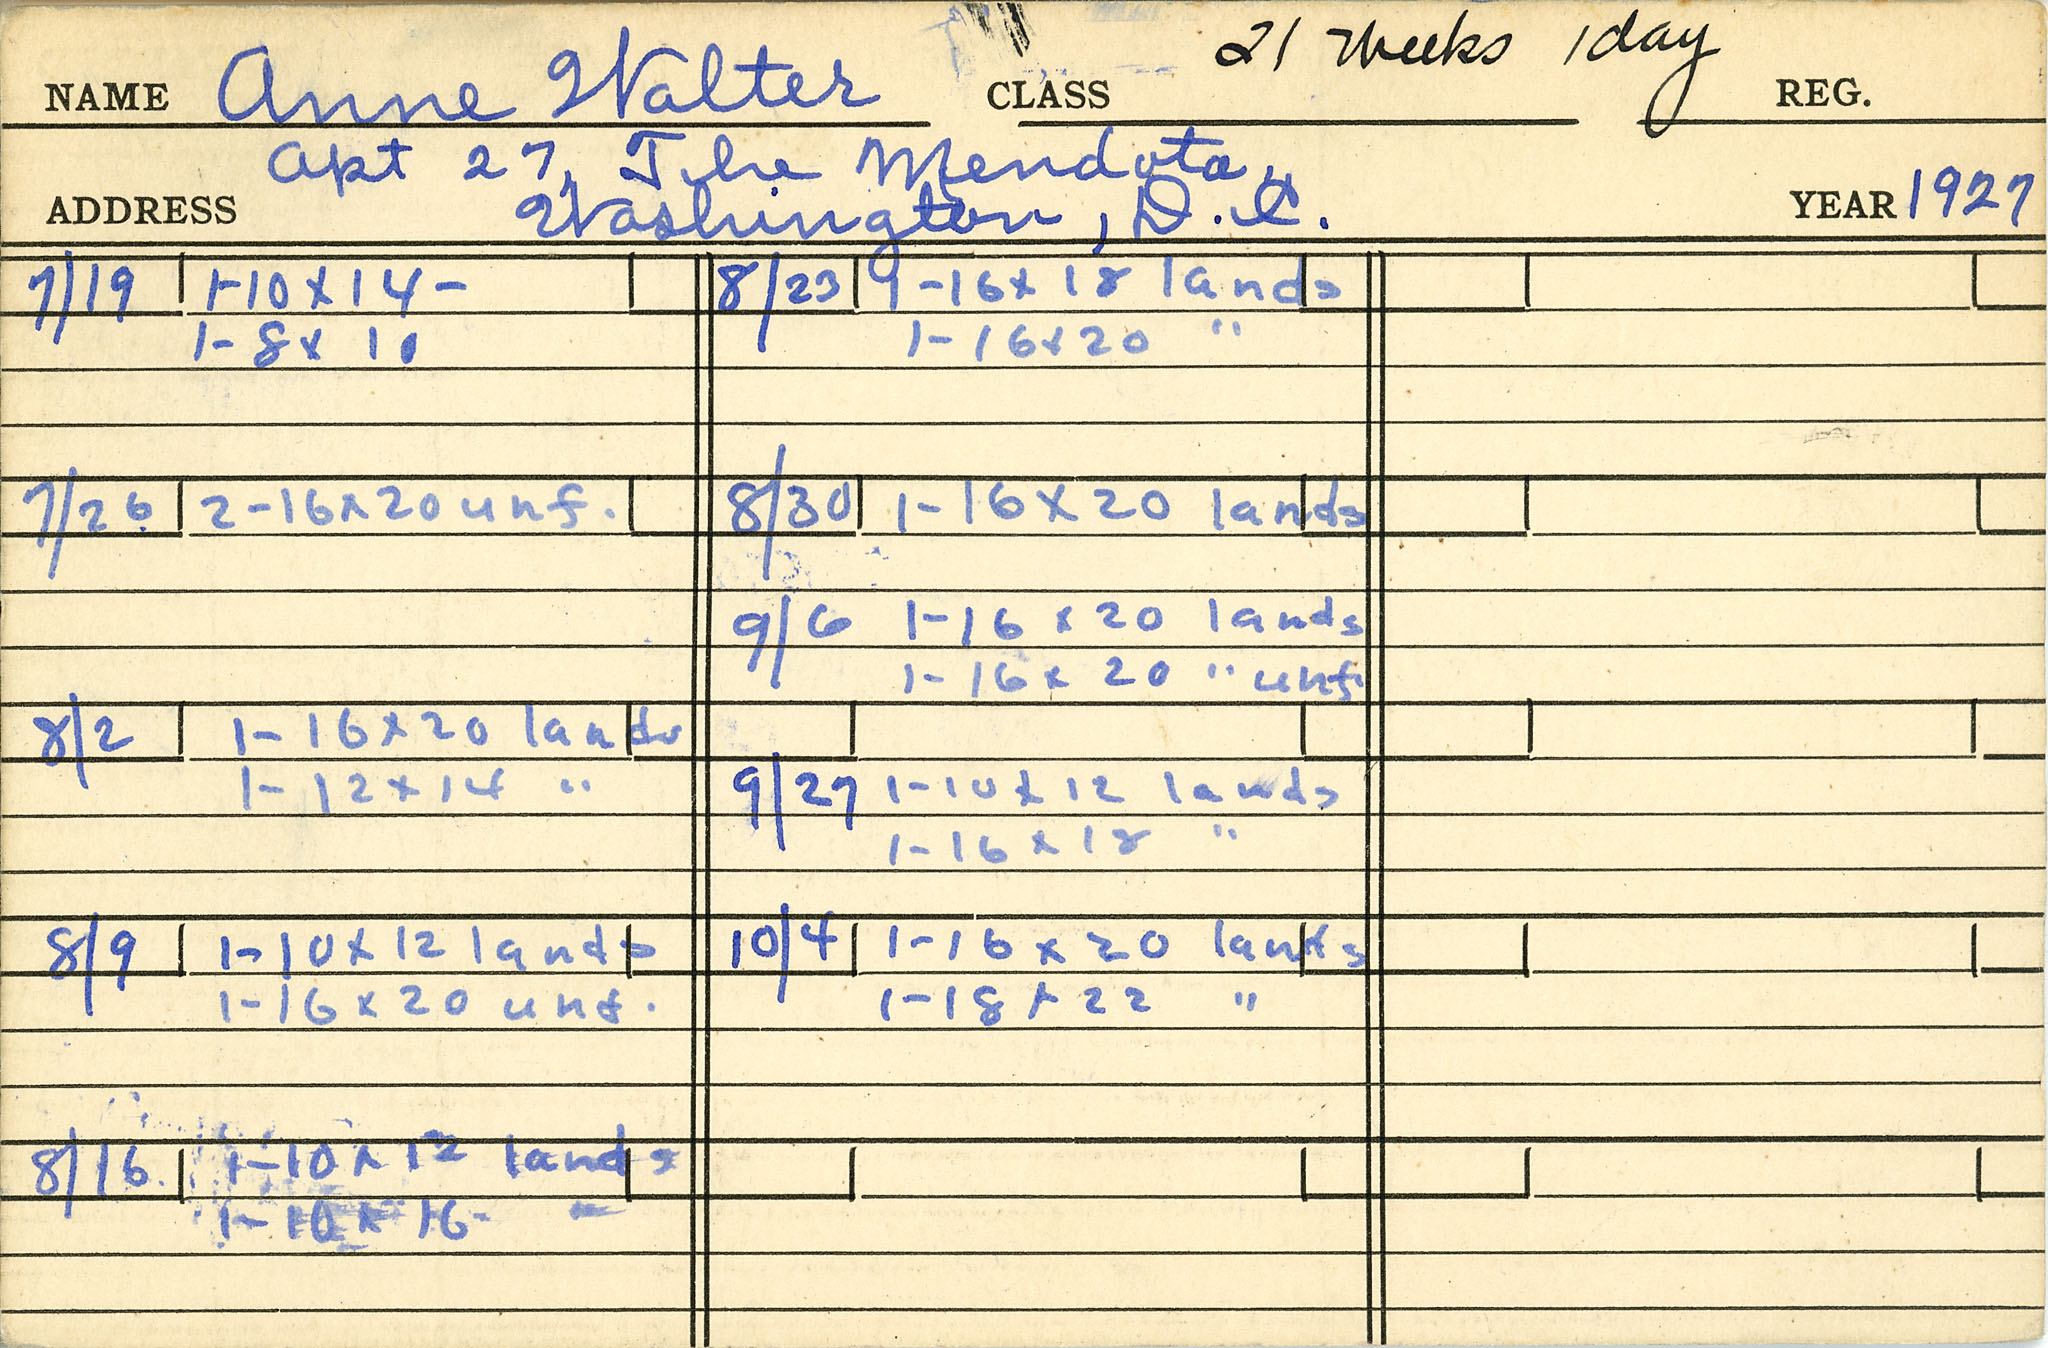 21 weeks 1 day
NAME Anne Walter CLASS REG.
Apt 27, The Mendota,
ADDRESS Washington, D.C. YEAR 1927
7/19 1-10x14-
1-8x10
7/26 2-16x20 unf.
8/2 1-16x20 lands
1-12x14 "
8/9 1-10x12 lands
1-16x20 unf.
8/16 1-10x12 lands
1-10x16- "
8/23 1-16x18 lands
1-16x20 "
8/30 1-16x20 lands
9/6 1-16x20 lands
1-16x20 " unf.
9/27 1-10x12 lands
1-16x18 "
10/4 1-16x20 lands
1-18x22 "